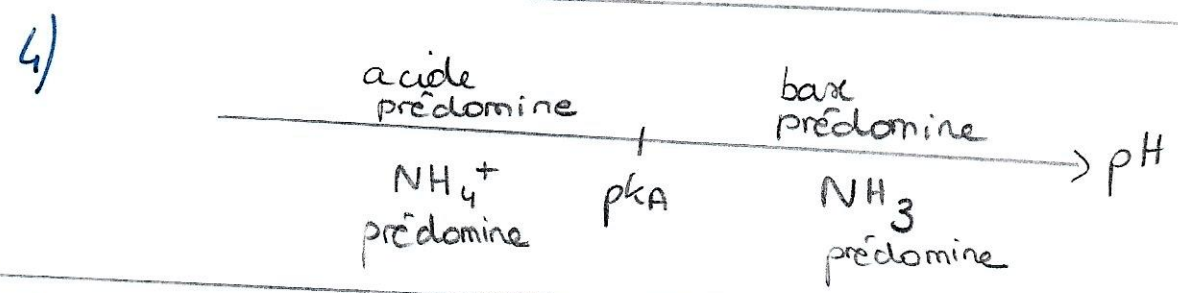 4)
acide
prédomine
base
prédomine
pH
NH₄⁺
prédomine
pkA
NH₃
prédomine